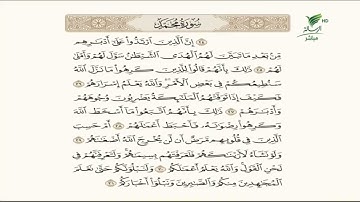 سورة محمد
HD
الرسالة
مباشر
إِنَّ ٱلَّذِينَ ٱرْتَدُّوا۟ عَلَىٰٓ أَدْبَـٰرِهِم
مِّنۢ بَعْدِ مَا تَبَيَّنَ لَهُمُ ٱلْهُدَى ٱلشَّيْطَـٰنُ سَوَّلَ لَهُمْ وَأَمْلَىٰ
لَهُمْ ۝٢٥ ذَٰلِكَ بِأَنَّهُمْ قَالُوا۟ لِلَّذِينَ كَرِهُوا۟ مَا نَزَّلَ ٱللَّهُ
سَنُطِيعُكُمْ فِى بَعْضِ ٱلْأَمْرِ وَٱللَّهُ يَعْلَمُ إِسْرَارَهُمْ ۝٢٦
فَكَيْفَ إِذَا تَوَفَّتْهُمُ ٱلْمَلَـٰٓئِكَةُ يَضْرِبُونَ وُجُوهَهُمْ
وَأَدْبَـٰرَهُمْ ۝٢٧ ذَٰلِكَ بِأَنَّهُمُ ٱتَّبَعُوا۟ مَآ أَسْخَطَ ٱللَّهَ
وَكَرِهُوا۟ رِضْوَٰنَهُۥ فَأَحْبَطَ أَعْمَـٰلَهُمْ ۝٢٨ أَمْ حَسِبَ
ٱلَّذِينَ فِى قُلُوبِهِم مَّرَضٌ أَن لَّن يُخْرِجَ ٱللَّهُ أَضْغَـٰنَهُمْ ۝٢٩
وَلَوْ نَشَآءُ لَأَرَيْنَـٰكَهُمْ فَلَعَرَفْتَهُم بِسِيمَـٰهُمْ وَلَتَعْرِفَنَّهُمْ فِى
لَحْنِ ٱلْقَوْلِ وَٱللَّهُ يَعْلَمُ أَعْمَـٰلَكُمْ ۝٣٠ وَلَنَبْلُوَنَّكُمْ حَتَّىٰ نَعْلَمَ
ٱلْمُجَـٰهِدِينَ مِنكُمْ وَٱلصَّـٰبِرِينَ وَنَبْلُوَا۟ أَخْبَارَكُمْ ۝٣١